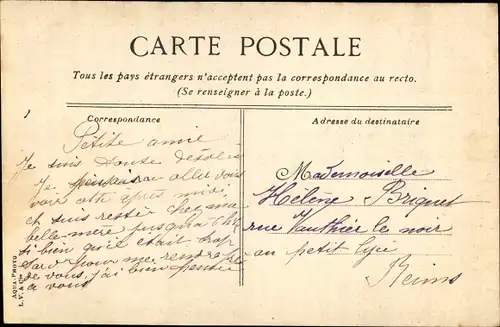 CARTE POSTALE
Tous les pays étrangers n'acceptent pas la correspondance au recto.
(Se renseigner à la poste.)
Correspondance
Petite amie
Je suis toute désolée
Je pensais aller vous
voir cet après midi
et suis restée chez ma
belle-mère jusqu'à
si bien qu'il était trop
tard pour me rendre près
de vous, j'ai bien pensé
à vous
Adresse du destinataire
Mademoiselle
Hélène Briquet
rue Vauthier le noir
au petit lycée
Reims
AQUA-PHOTO
L. V. & Cie